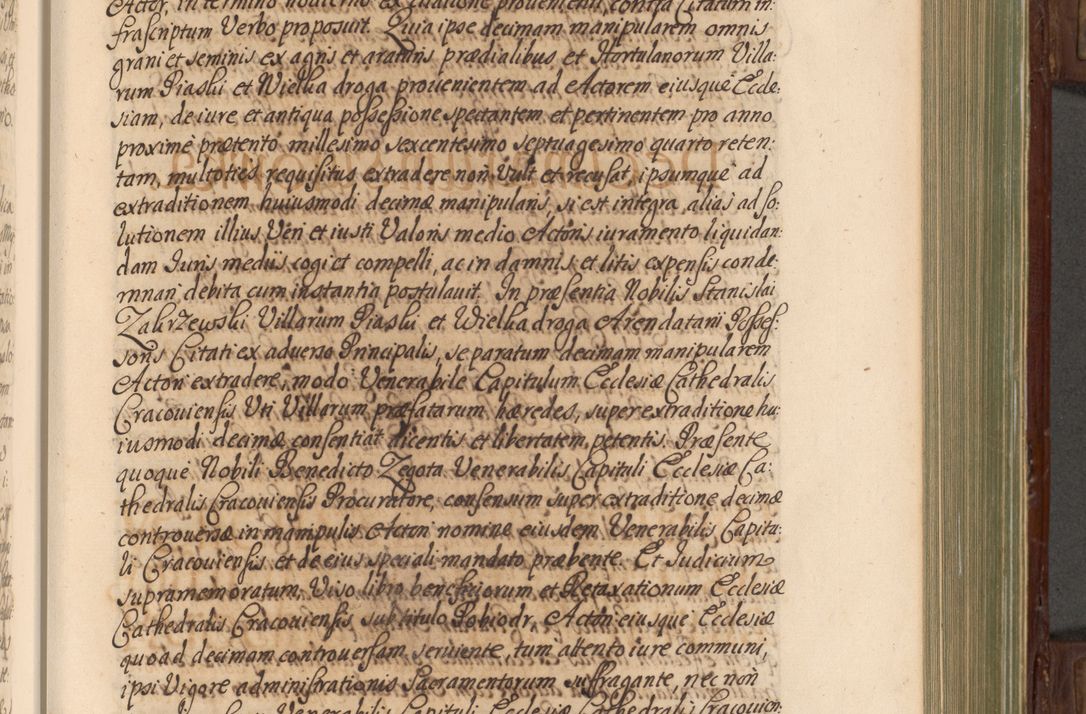 Actor, in termino hodierno ex citatione provenienti contra Citatum in:
frascriptum Verbo proposuit. Quia ipse decimam manipularem omnis
grani et seminis ex agris et araturis prædialibus et Hortulanorum Villa:
rum Piaski et Wielka droga prouenientem ad Actorem eiusque Eccle:
siam, de iure et antiqua possessione spectantem et pertinentem pro anno
proximè prætento millesimo sexcentesimo septuagesimo quarto reten:
tam, multoties requisitus extradere non Vult et recusat, ipsumque ad
extraditionem huiusmodi decimæ manipularis, si est integra, alias ad so:
lutionem illius Veri et iusti Valoris medio Actoris iuramento liquidan:
dam Juris medijs cogi et compelli, ac in damnis et litis expensis conde:
mnari debita cum instantia postulauit. In præsentia Nobilis Stanislai
Zakrzewski Villarum Piaski et Wielka droga Arendatarij Posses:
soris Citati ex aduerso Principalis, se paratum decimam manipularem
Actori extradere, modo Venerabile Capitulum Ecclesiæ Cathedralis
Cracouiensis Uti Villarum præfatarum hæredes, super extraditione hu:
iusmodi decimæ consentiat dicentis et libertatem petentis. Præsente
quoque Nobili Benedicto Zegota Venerabilis Capituli Ecclesiæ Ca:
thedralis Cracouiensis Procuratore, consensum super extraditione decimæ
controuersæ in manipulis Actori nomine eiusdem Venerabilis Capitu:
li Cracouiensis et de eius speciali mandato præbente. Et Judicium
supramemoratum, Viso libro beneficiorum et Retaxationum Ecclesiæ
Cathedralis Cracouiensis sub titulo Pobiodr, Actori eiusque Ecclesiæ
quoad decimam controuersam seruiente, tum attento iure communi,
ipsi Vigore administrationis Sacramentorum suffragante, nec non
Venerabilis Capituli Ecclesiæ Cathedralis Cracouien: